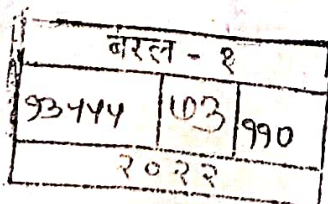 बरल - १
१३५५५ ७३ ११०
२०२२